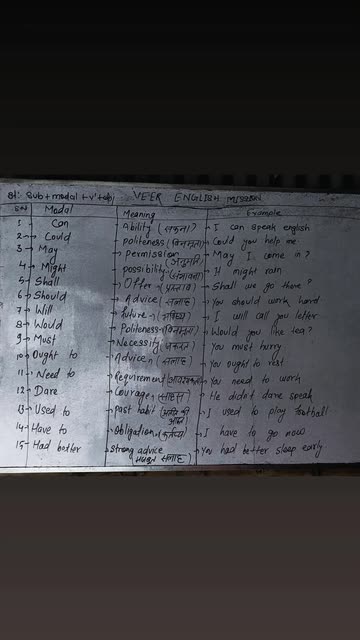 Sub+modal+v¹+obj VEER ENGLISH MISSION
S.N Modal Meaning Example
1 Can Ability (सकना) I can speak english
2 Could politeness (विनम्रता) Could you help me
3 May permission (अनुमति) May I come in?
4 Might possibility (संभावना) It might rain
5 Shall Offer (प्रस्ताव) Shall we go there?
6 Should Advice (सलाह) You should work hard
7 Will future (भविष्य) I will call you letter
8 Would Politeness (विनम्रता) Would you like tea?
9 Must Necessity (जरूरत) You must hurry
10 Ought to Advice (सलाह) You ought to rest
11 Need to Requirement (आवश्यकता) You need to work
12 Dare Courage (साहस) He didn't dare speak
13 Used to past habit I used to play football
14 Have to Obligation (कर्तव्य) I have to go now
15 Had better Strong advice You had better sleep early
सलाह)